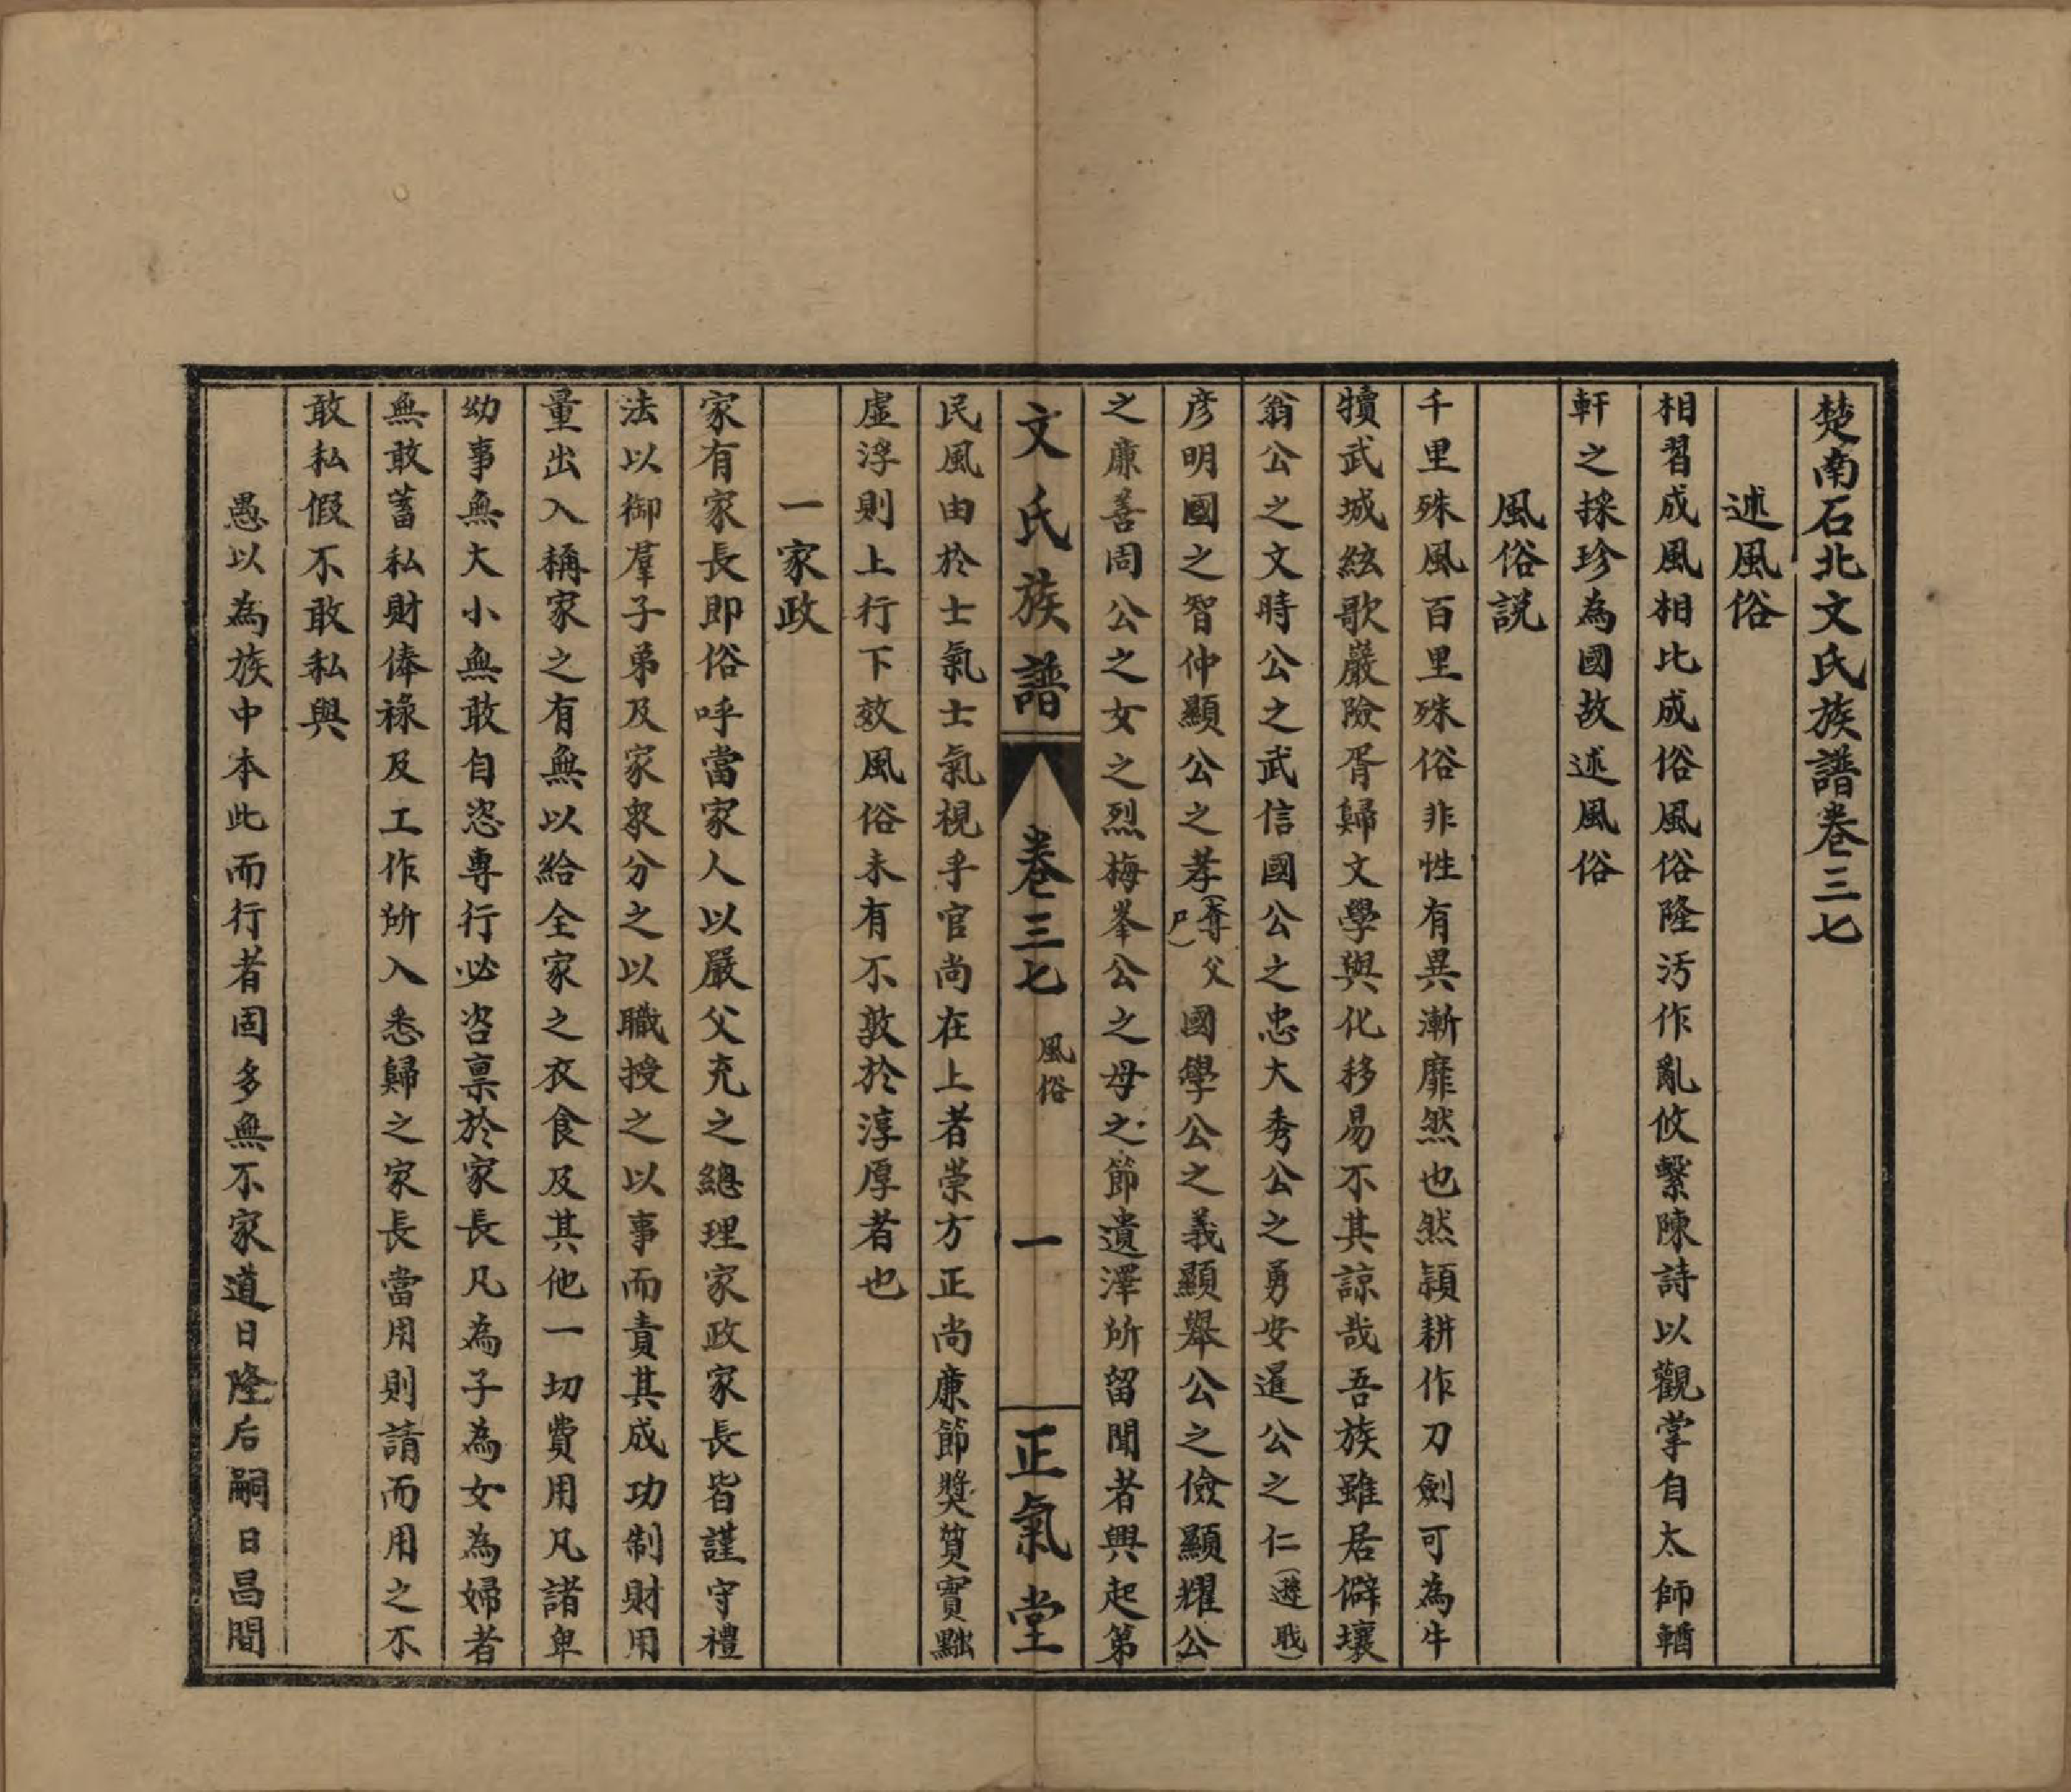 楚南石北文氏族譜卷三七
述風俗
相習成風相比成俗風俗隆污作亂攸繫陳詩以觀掌自太師輶
軒之採珍為國故述風俗
風俗説
千里殊風百里殊俗非性有異漸靡然也然潁耕作刀劍可為牛
犢武城絃歌嚴險胥歸文學與化移易不其諒哉吾族雖居僻壤
翁公之文時公之武信國公之忠大秀公之勇安暹公之仁(遊戝)
彦明國之智仲顯公之孝(奪父尸)國學公之義顯舉公之儉顯耀公
之亷善周公之女之烈梅峯公之母之節遺澤所留聞者興起第
文氏族譜
卷三七
風俗
一
正氣堂
民風由於士氣士氣視乎官尚在上者崇方正尚亷節獎質實黜
虛浮則上行下效風俗未有不敦於淳厚者也
一家政
家有家長即俗呼當家人以嚴父充之總理家政家長皆謹守禮
法以御羣子弟及家衆分之以職授之以事而責其成功制財用
量出入稱家之有無以給全家之衣食及其他一切費用凡諸卑
幼事無大小無敢自恣專行必咨禀於家長凡為子為女為婦者
無敢蓄私財俸祿及工作所入悉歸之家長當用則請而用之不
敢私假不敢私與
愚以為族中本此而行者固多無不家道日隆后嗣日昌間